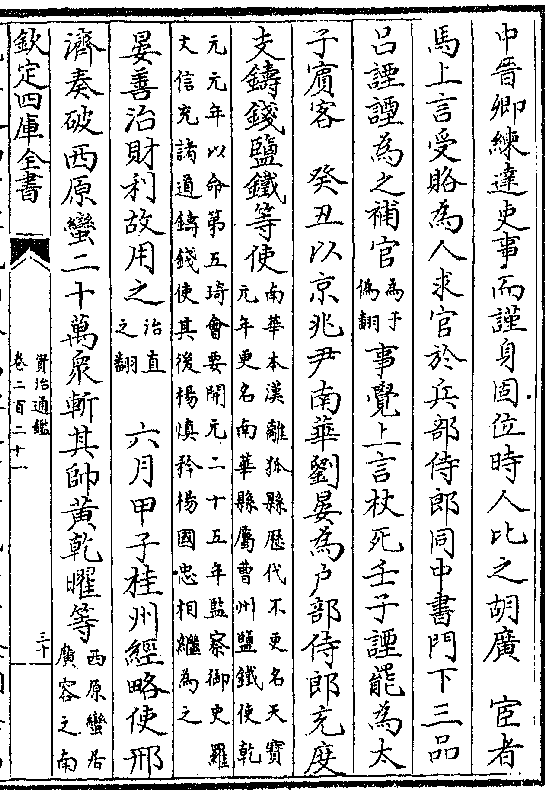 中晉卿練達吏事而謹身固位時人比之胡廣　宦者
馬上言受賂為人求官於兵部侍郎同中書門下三品
呂諲諲為之補官為于偽翻事覺上言杖死壬子諲罷為太
子賓客　癸丑以京兆尹南華劉晏為戶部侍郎充度
支鑄錢鹽鐵等使南華本漢離狐縣歷代不更名天寶元年更名南華縣屬曹州鹽鐵使乾
元元年以命第五琦會要開元二十五年監察御史羅文信充諸道鑄錢使其後楊慎矜楊國忠相繼為之
晏善治財利故用之治直之翻　六月甲子桂州經略使邢
濟奏破西原蠻二十萬衆斬其帥黃乾曜等西原蠻居廣容之南
欽定四庫全書
資治通鑑
卷二百二十一
三十